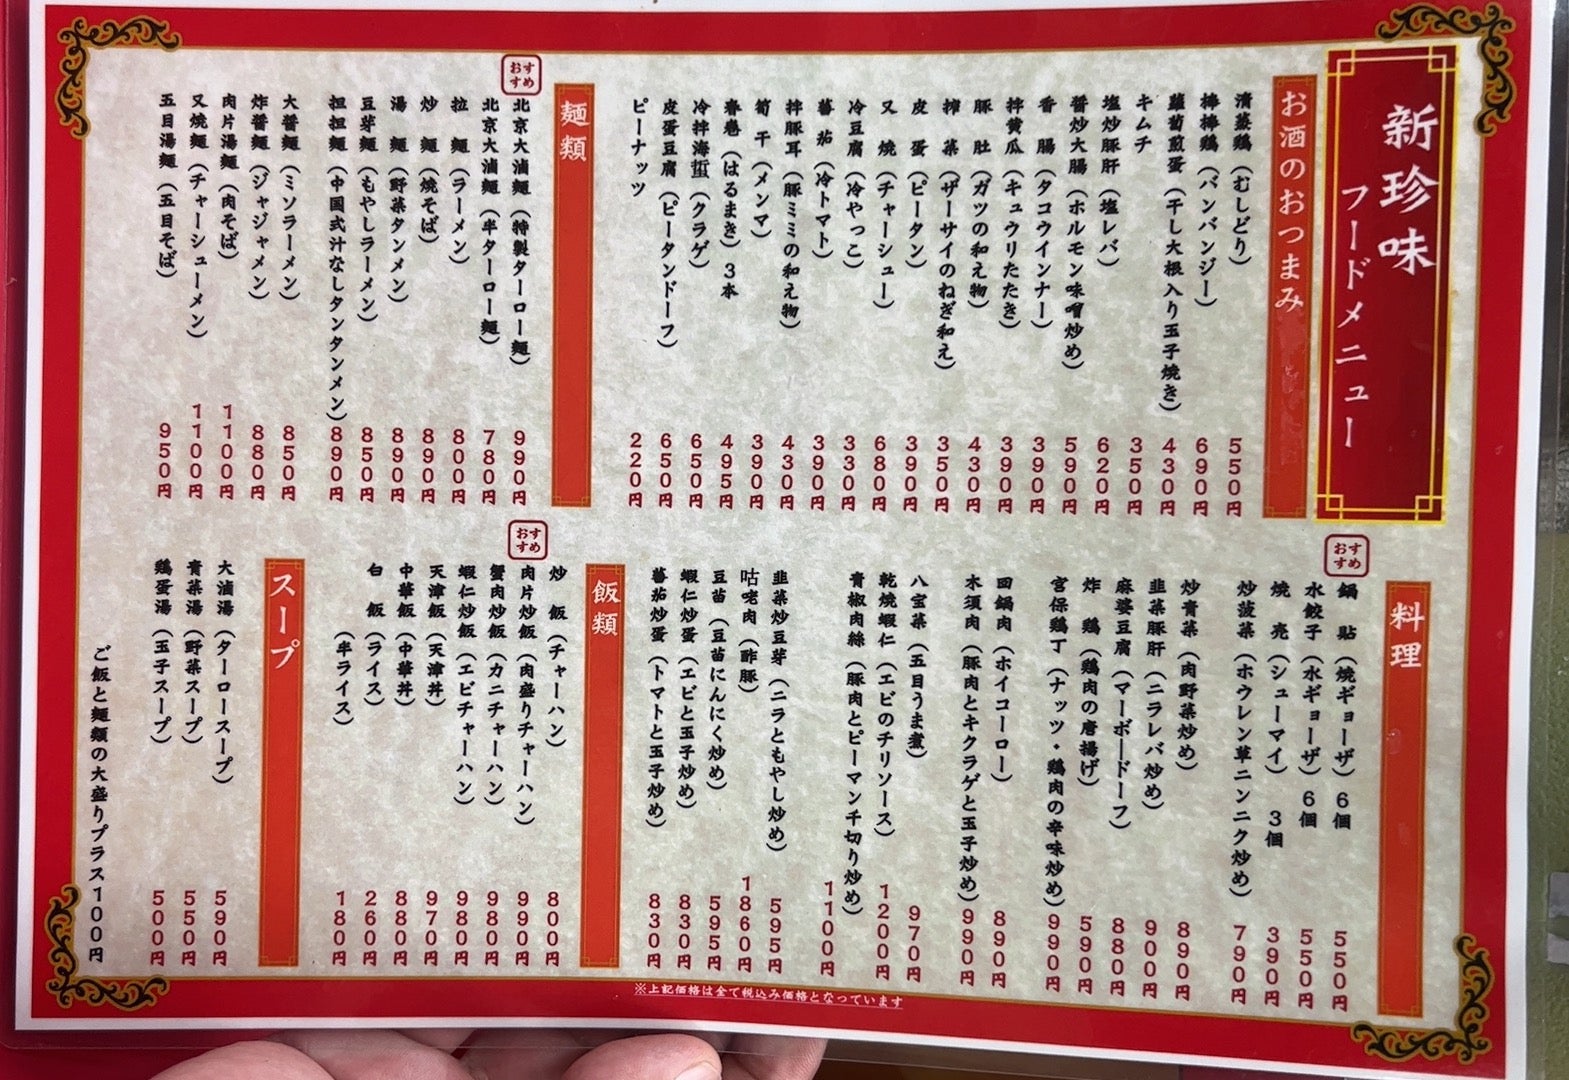 新珍味
フードメニュー
お酒のおつまみ
清蒸鶏（むしどり） 550円
棒棒鶏（バンバンジー） 690円
蘿蔔煎蛋（干し大根入り玉子焼き） 430円
キムチ 350円
塩炒豚肝（塩レバ） 620円
醤炒大腸（ホルモン味噌炒め） 590円
香腸（タコウインナー） 390円
拌黄瓜（キュウリたたき） 390円
豚肚（ガツの和え物） 430円
搾菜（ザーサイのねぎ和え） 350円
皮蛋（ピータン） 390円
叉焼（チャーシュー） 680円
冷豆腐（冷やっこ） 330円
蕃茄（冷トマト） 390円
拌豚耳（豚ミミの和え物） 430円
筍干（メンマ） 390円
春巻（はるまき）３本 495円
冷拌海蜇（クラゲ） 650円
皮蛋豆腐（ピータンドーフ） 650円
ピーナッツ 220円
麺類
おすすめ
北京大滷麺（特製ターロー麺） 990円
北京大滷麺（半ターロー麺） 780円
拉麺（ラーメン） 800円
炒麺（焼そば） 890円
湯麺（野菜タンメン） 890円
豆芽麺（もやしラーメン） 850円
担担麺（中国式汁なしタンタンメン） 890円
大醤麺（ミソラーメン） 850円
炸醤麺（ジャジャメン） 880円
肉片湯麺（肉そば） 1100円
叉焼麺（チャーシューメン） 1100円
五目湯麺（五目そば） 950円
料理
おすすめ
鍋貼（焼ギョーザ）６個 550円
水餃子（水ギョーザ）６個 550円
焼売（シューマイ）３個 390円
炒菠菜（ホウレン草ニンニク炒め） 790円
炒青菜（肉野菜炒め） 890円
韭菜豚肝（ニラレバ炒め） 900円
麻婆豆腐（マーボードーフ） 880円
炸鶏（鶏肉の唐揚げ） 590円
宮保鶏丁（ナッツ・鶏肉の辛味炒め） 990円
回鍋肉（ホイコーロー） 890円
木須肉（豚肉とキクラゲと玉子炒め） 990円
八宝菜（五目うま煮） 970円
乾焼蝦仁（エビのチリソース） 1200円
青椒肉絲（豚肉とピーマン千切り炒め） 1100円
韭菜炒豆芽（ニラともやし炒め） 595円
咕咾肉（酢豚） 1860円
豆苗（豆苗にんにく炒め） 595円
蝦仁炒蛋（エビと玉子炒め） 830円
蕃茄炒蛋（トマトと玉子炒め） 830円
飯類
炒飯（チャーハン） 800円
おすすめ
肉片炒飯（肉盛りチャーハン） 990円
蟹肉炒飯（カニチャーハン） 980円
蝦仁炒飯（エビチャーハン） 980円
天津飯（天津丼） 970円
中華飯（中華丼） 880円
白飯（ライス） 260円
（半ライス） 180円
スープ
大滷湯（タースープ） 590円
青菜湯（野菜スープ） 550円
鶏蛋湯（玉子スープ） 500円
ご飯と麺類の大盛りプラス100円
※上記価格は全て税込み価格となっています